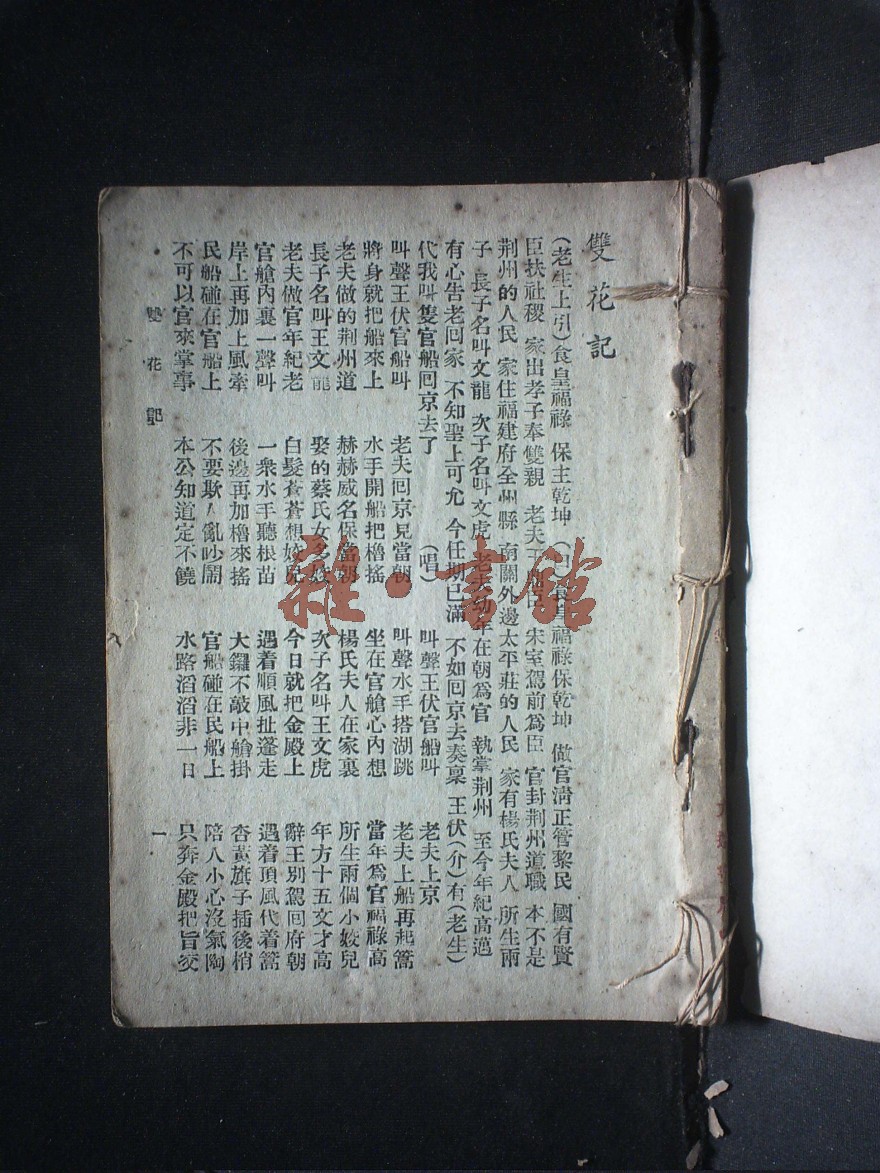 雙花記
(老生上引)食皇福祿 保主乾坤 食皇福祿保乾坤 做官淸正管黎民 國有賢
臣扶社稷 家出孝子奉雙親 老夫王 宋室駕前爲臣 官封荆州道職 本不是
荆州的人民 家住福建府全州縣 南關外邊太平莊的人民 家有楊氏夫人 所生兩
子 長子名叫文龍 次子名叫文虎 老夫幼年在朝爲官 執掌荆州 至今年紀高邁
有心告老回家 不知聖上可允 今任期已滿 不如回京去奏稟 王伏(介)有(老生)
代我叫隻官船回京去了 (唱) 叫聲王伏官船叫 老夫上京
叫聲王伏官船叫 老夫回京見當朝 叫聲水手搭湖跳 老夫上船再起篙
將身就把船來上 水手開船把櫓搖 坐在官艙心內想 當年爲官福祿高
老夫做的荆州道 赫赫威名保當朝 楊氏夫人在家裏 所生兩個小姣兒
長子名叫王文龍 娶的蔡氏女多姣 次子名叫王文虎 年方十五文才高
老夫做官年紀老 白髮蒼蒼想姣兒 今日就把金殿上 辭王別駕回府朝
官艙內裏一聲叫 一衆水手聽根苗 遇着順風扯篷走 遇着頂風代着篙
岸上再加上風牽 後邊再加櫓來搖 大鑼不敲中艙掛 杏黃旗子插後梢
民船碰在官船上 不要欺人亂吵鬧 官船碰在民船上 陪人小心沒氣陶
不可以官來掌事 本公知道定不饒 水路滔滔非一日 只奔金殿把旨交
雙花記 一
雅·書館